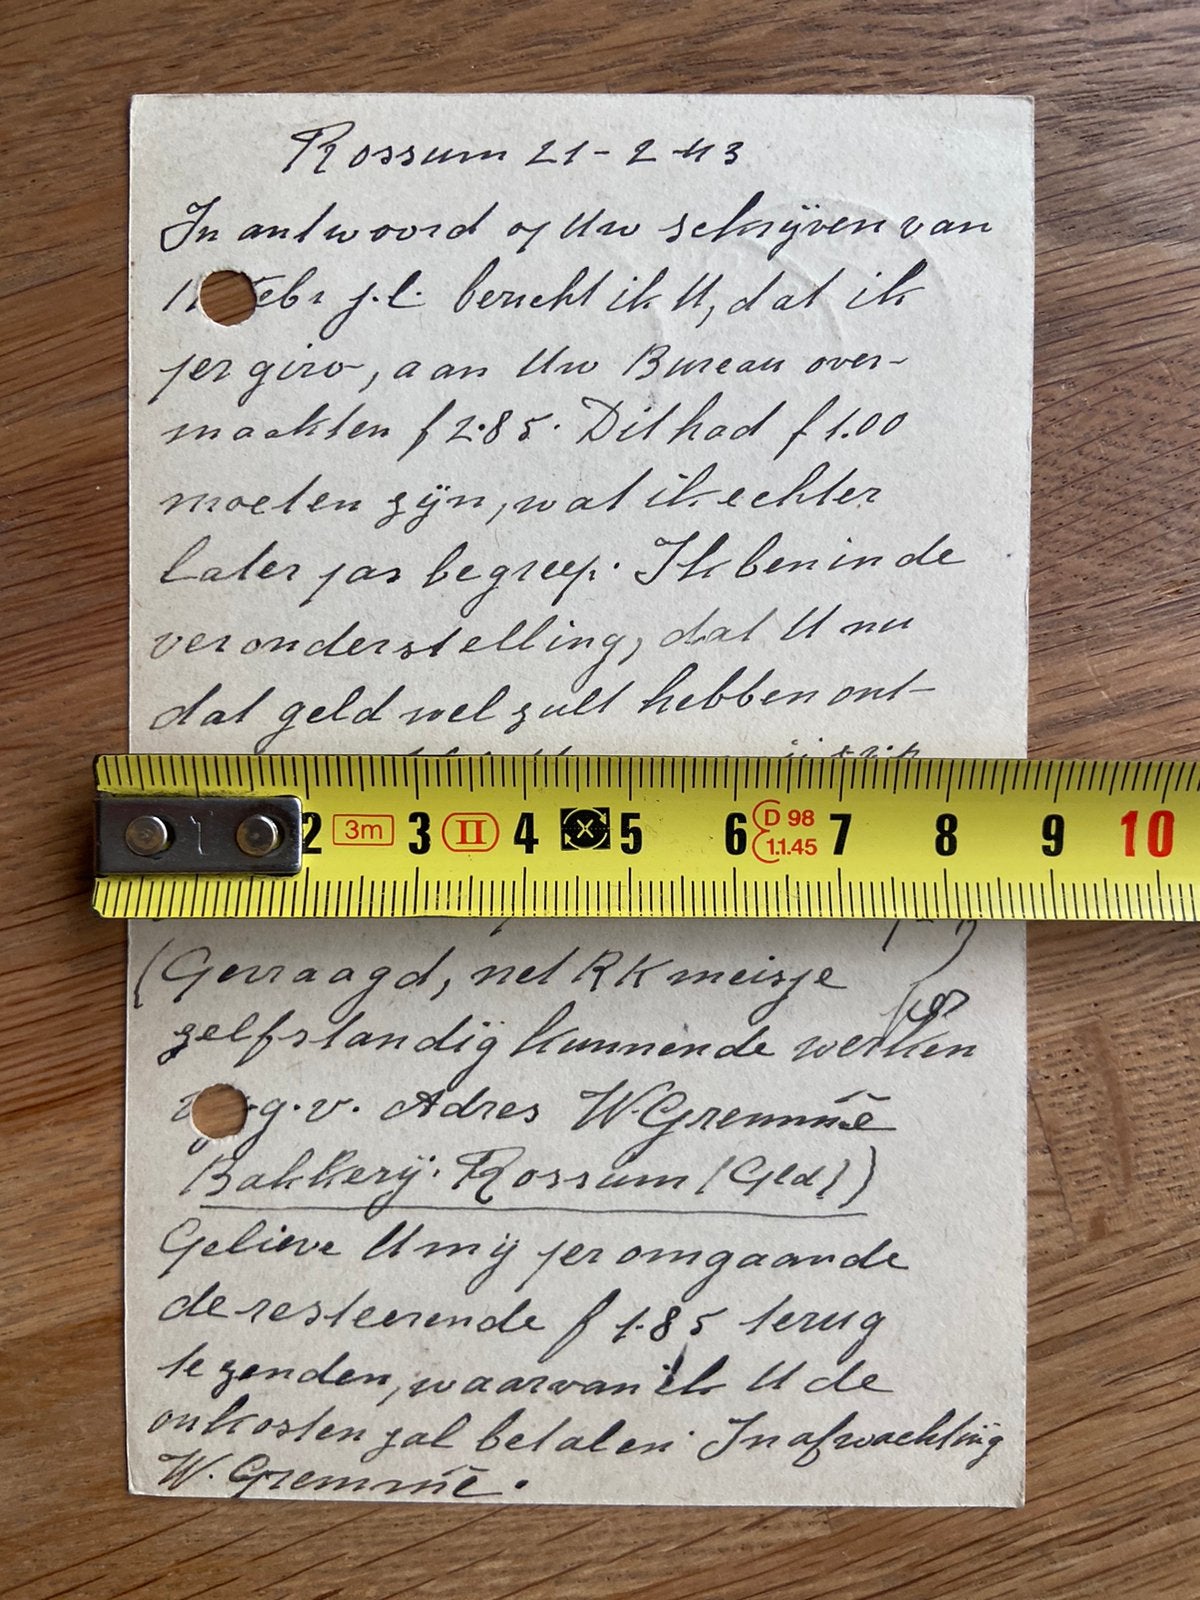 Rossum 21-2-43
In antwoord op Uw schrijven van
Febr j.l. bericht ik U, dat ik
per giro, aan Uw Bureau over-
maakten f 2.85. Dit had f 1.00
moeten zijn, wat ik echter
later pas begreep. Ik ben in de
veronderstelling, dat U nu
dat geld wel zult hebben ont-
1 2 3m 3 II 4 5 6 D 98 1.1.45 7 8 9 10
(Gevraagd, net RK meisje
zelfstandig kunnende werken
g.v. Adres W. Gremmé
Bakkerij. Rossum (Gld))
Gelieve U mij per omgaande
de resteerende f 1.85 terug
te zenden, waarvan ik U de
onkosten zal betalen. In afwachting
W. Gremmé.